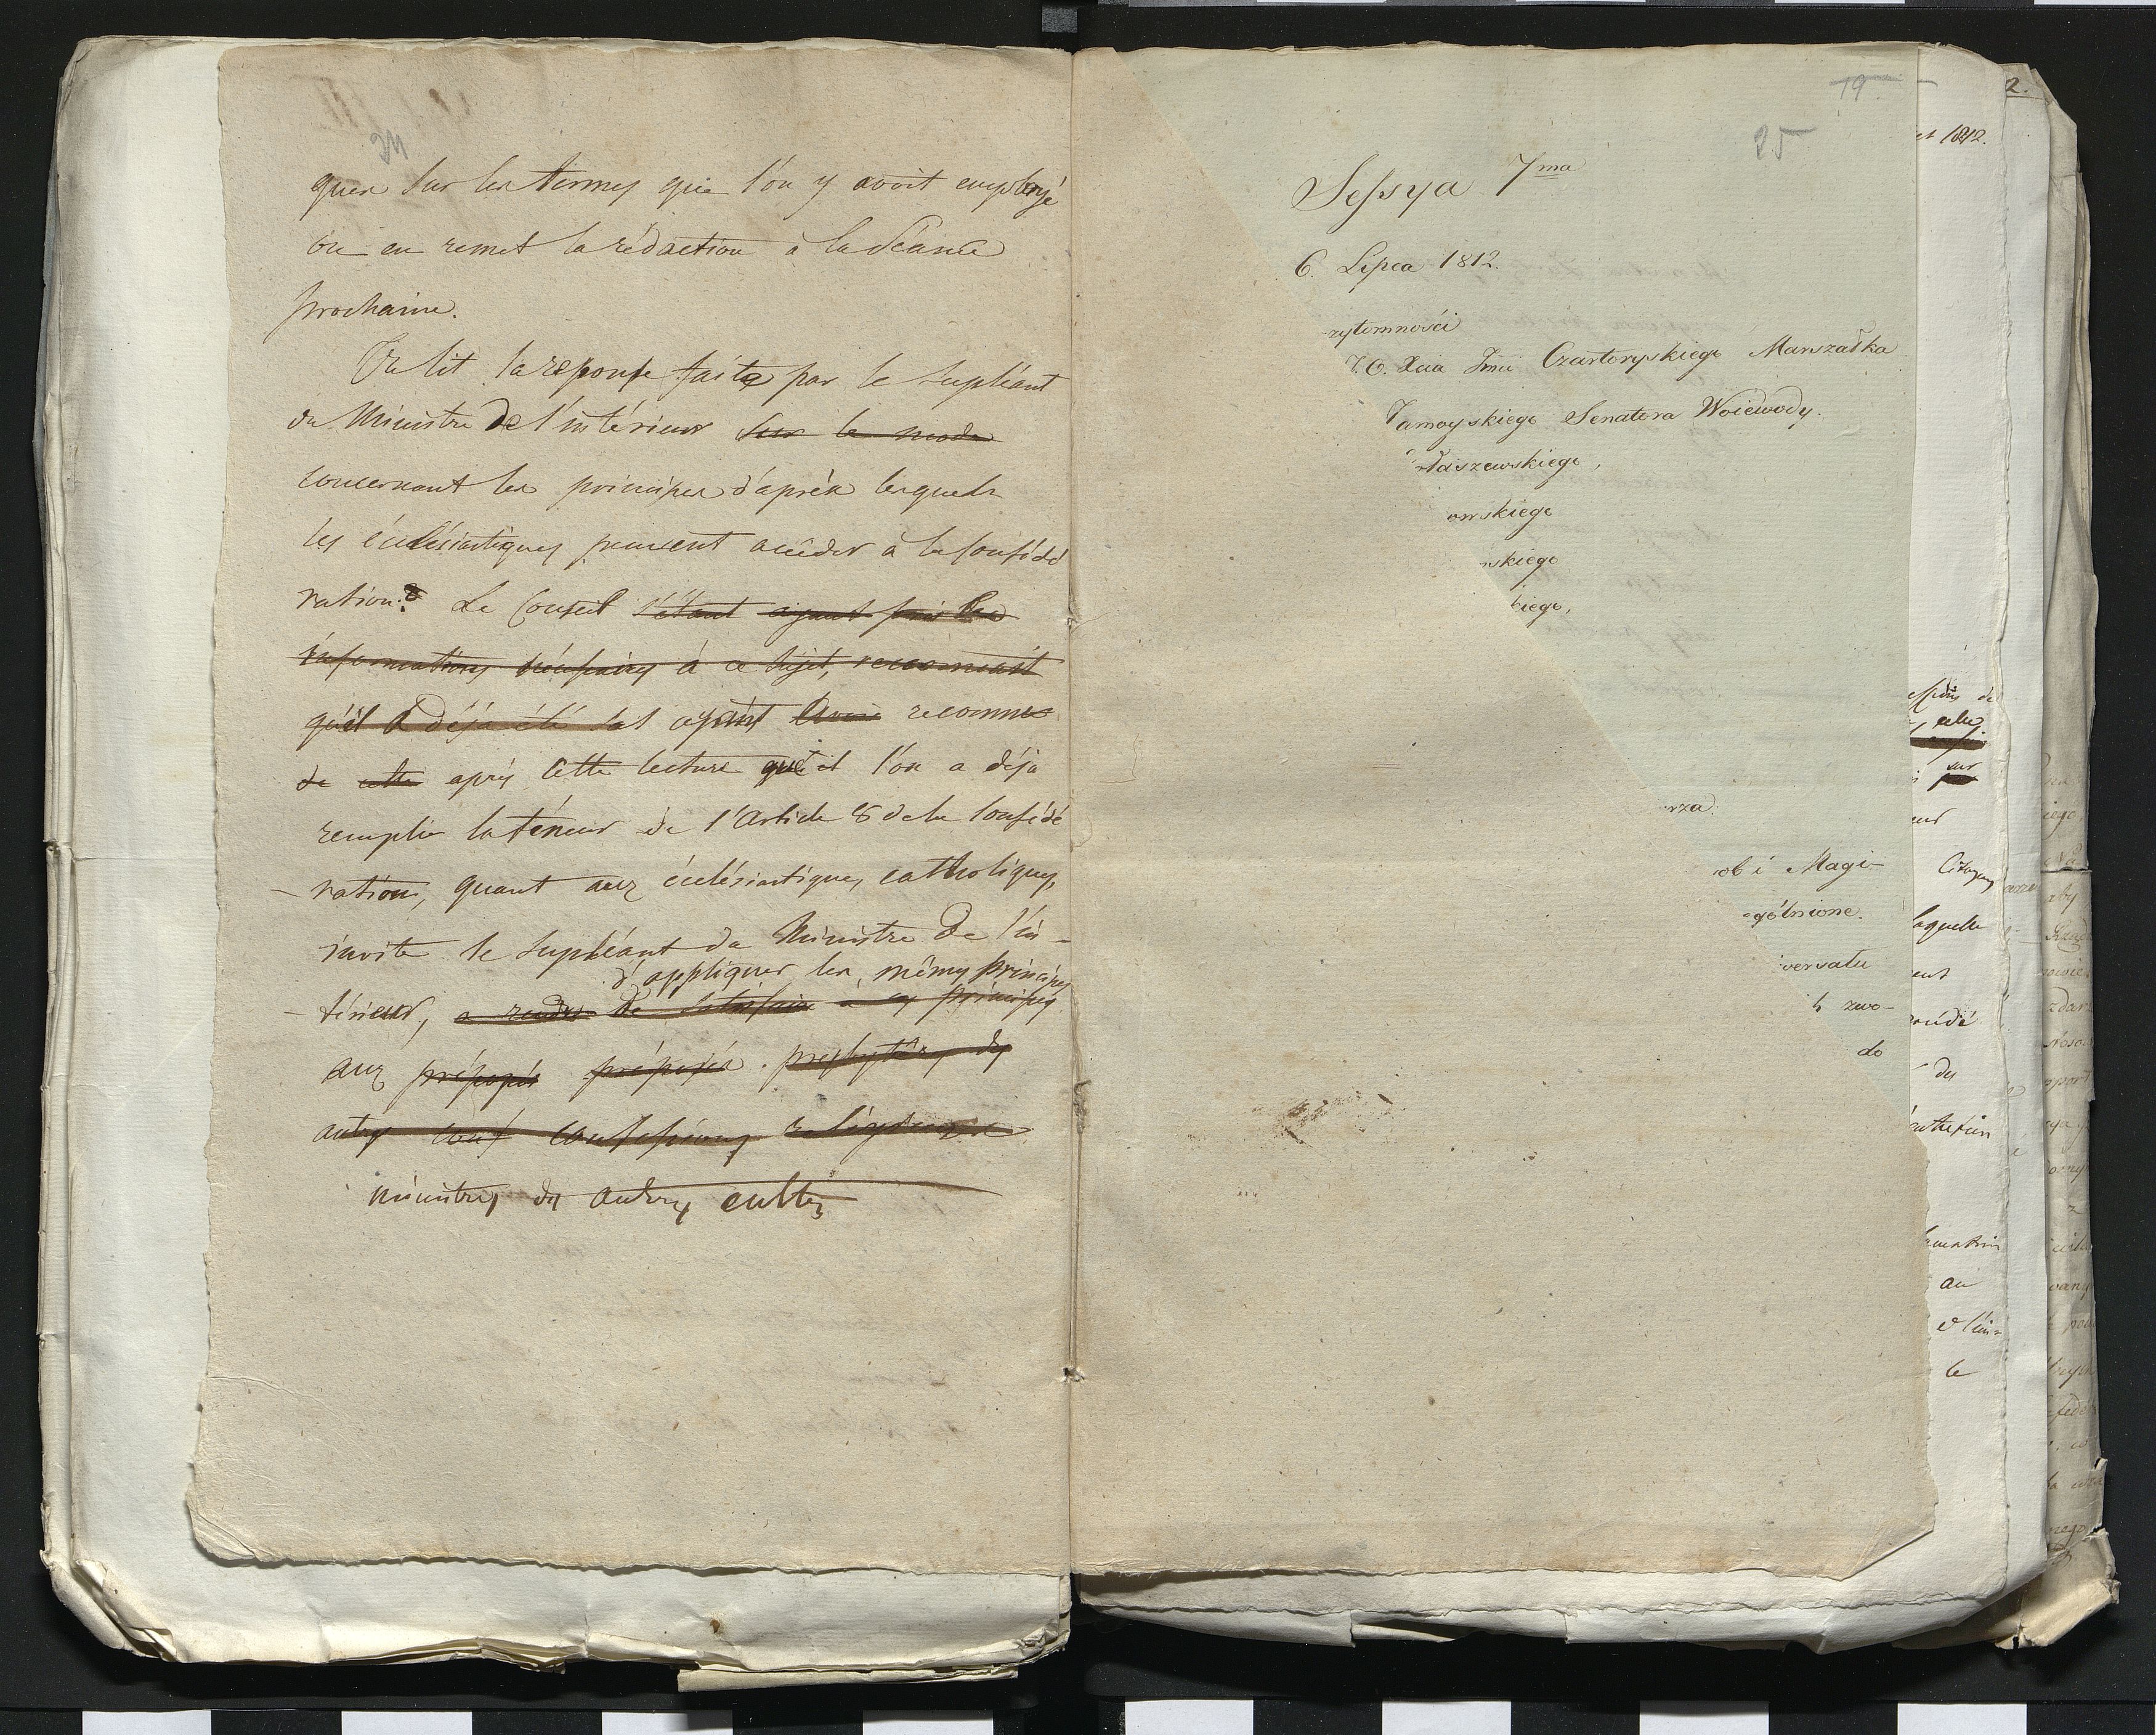 24
quer sur les termes que l'on y avoit employé
on en remet la rédaction à la Séance
prochaine.
On lit la reponse faite par le Supléant
du Ministre de l'intérieur sur le mode
concernant les principes d'après lesquels
les éclésiastiques peuvent accéder à la Confédé
ration. Le Conseil s'étant ayant pris les
informations nécessaires à ce sujet, reconnait
qu'il a déjà été sat ayant avoir reconnu
de cette après cette lecture que l'on a déjà
remplie la téneur de l'Article 8 de la Confédé
ration, quant aux éclésiastiques catholiques,
invite le Supléant du Ministre de l'in-
d'appliquer les mêmes principes
térieur, a rendre de à ces principes
aux préposés préposés presbytères des
autres confessions religieuses
ministres des autres cultes
19
25
Sessya 7ma
6. Lipca 1812.
rzytomności
J.O. Xcia Jmci Czartoryskiego Marszałka
Zamoyskiego Senatora Woiewody.
rdaszewskiego,
owskiego
wskiego
kiego,
rza.
ob i Magi-
egółnione.
versału
h zwo-
do
et 1812.
2.
celui
sur
eur
Citoyens
laquelle
ent
des
au
et l'in-
le